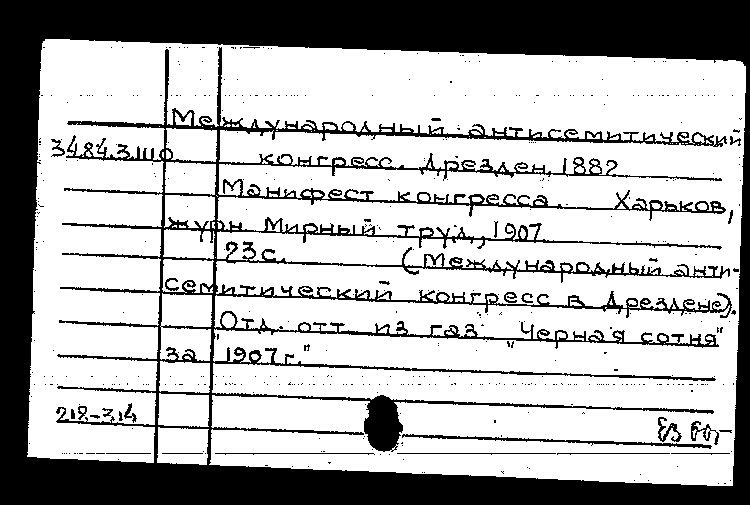 Международный антисемитический
34.84.3.1110 конгресс. Дрезден, 1882
Манифест конгресса. Харьков,
журн Мирный труд, 1907
23с. (Международный анти-
семитический конгресс в Дрездене).
Отд. отт из газ "Черная сотня"
за "1907г."
212-314